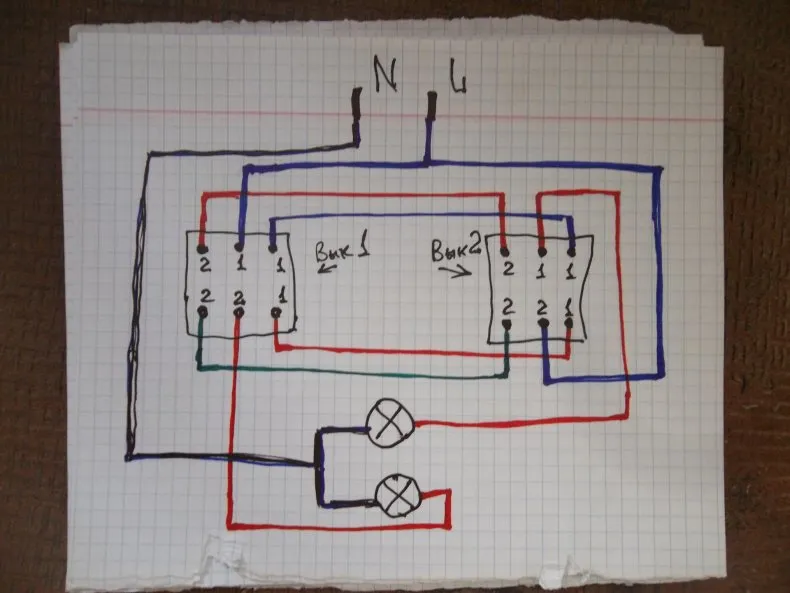 N L
Вык 1
Вык 2
2 1 1
2 2 1
2 1 1
2 2 1